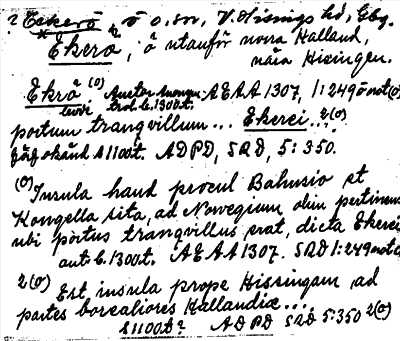 ? Eckerö, ö o. sn, V. Hisings hd, Gbg.
Ekerö, ö utanför norra Halland,
nära Hisingen.
Ekrå (0) Auctor Anonym: AEAA 1307, 1:249 ō not (0)
trol. b. 1300t.
portum tranqvillum... Ekerei... 2(0)
förf okänd s1100t. ADPD, SRD, 5:350.
(0) Insula haud procul Bahusio et
Kongella sita, ad Norvegiam olim pertinens
ubi portus tranqvillus erat, dicta Ekerei
aut. b. 1300t. AEAA 1307. SRD 1:249 not
2(0) Est insula prope Hissingam ad
partes borealiores Hallandiæ...
s1100t? ADPD SRD 5:350 2(0)